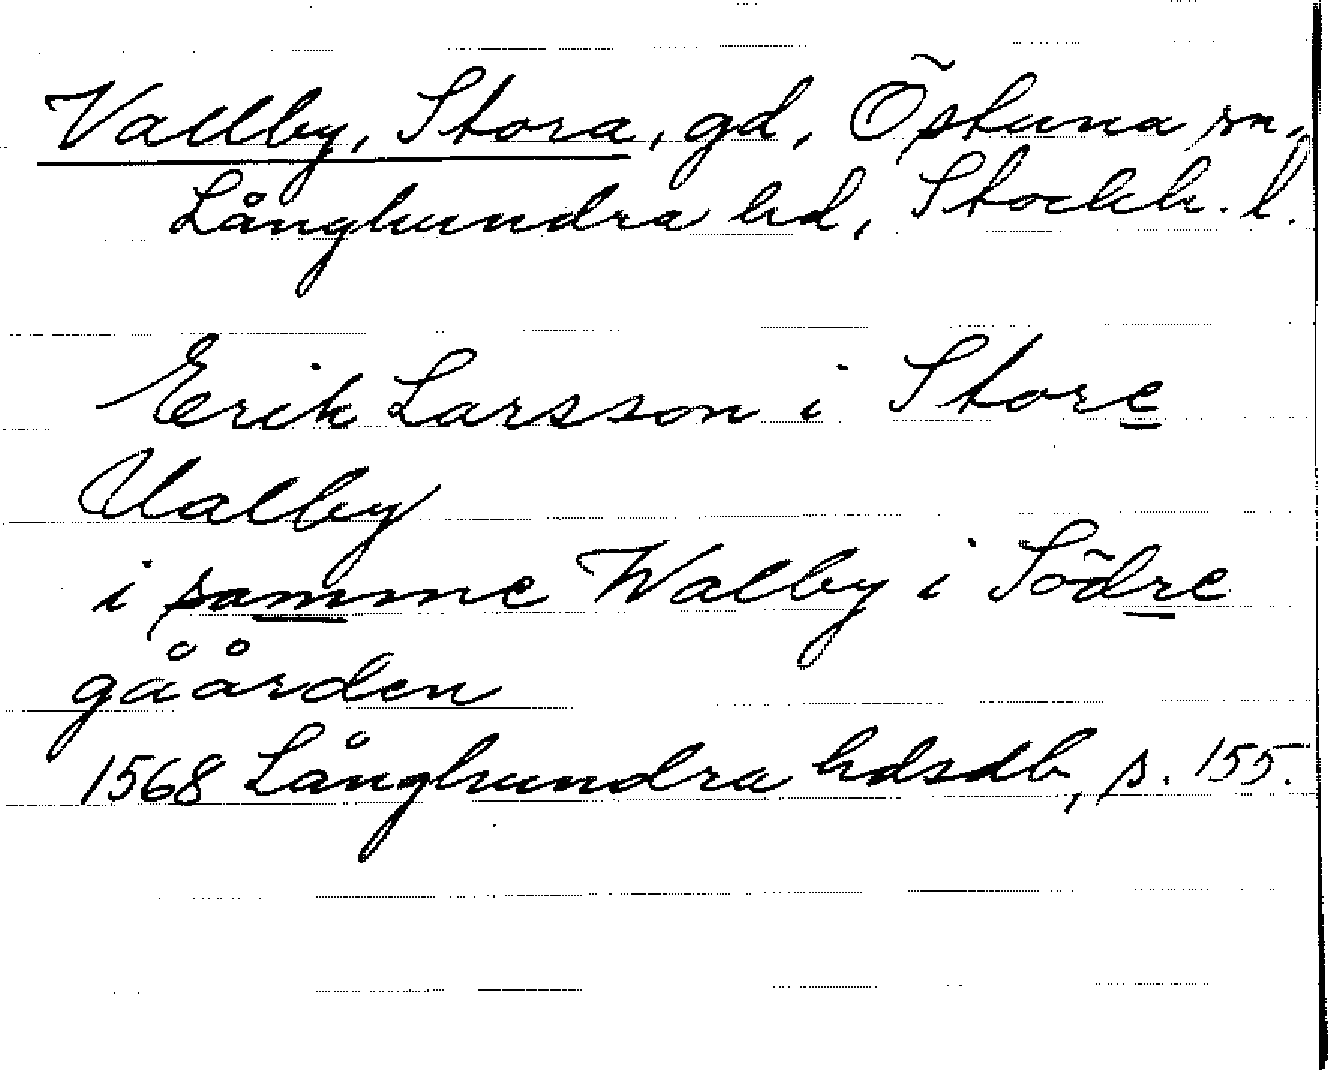 Vallby, Stora, gd, Östuna sn,
Långhundra hd, Stockh. l.
Erik Larsson i Store
Ualby
i samme Walby i Södre
gåården
1568 Långhundra hdsdb, s. 155.